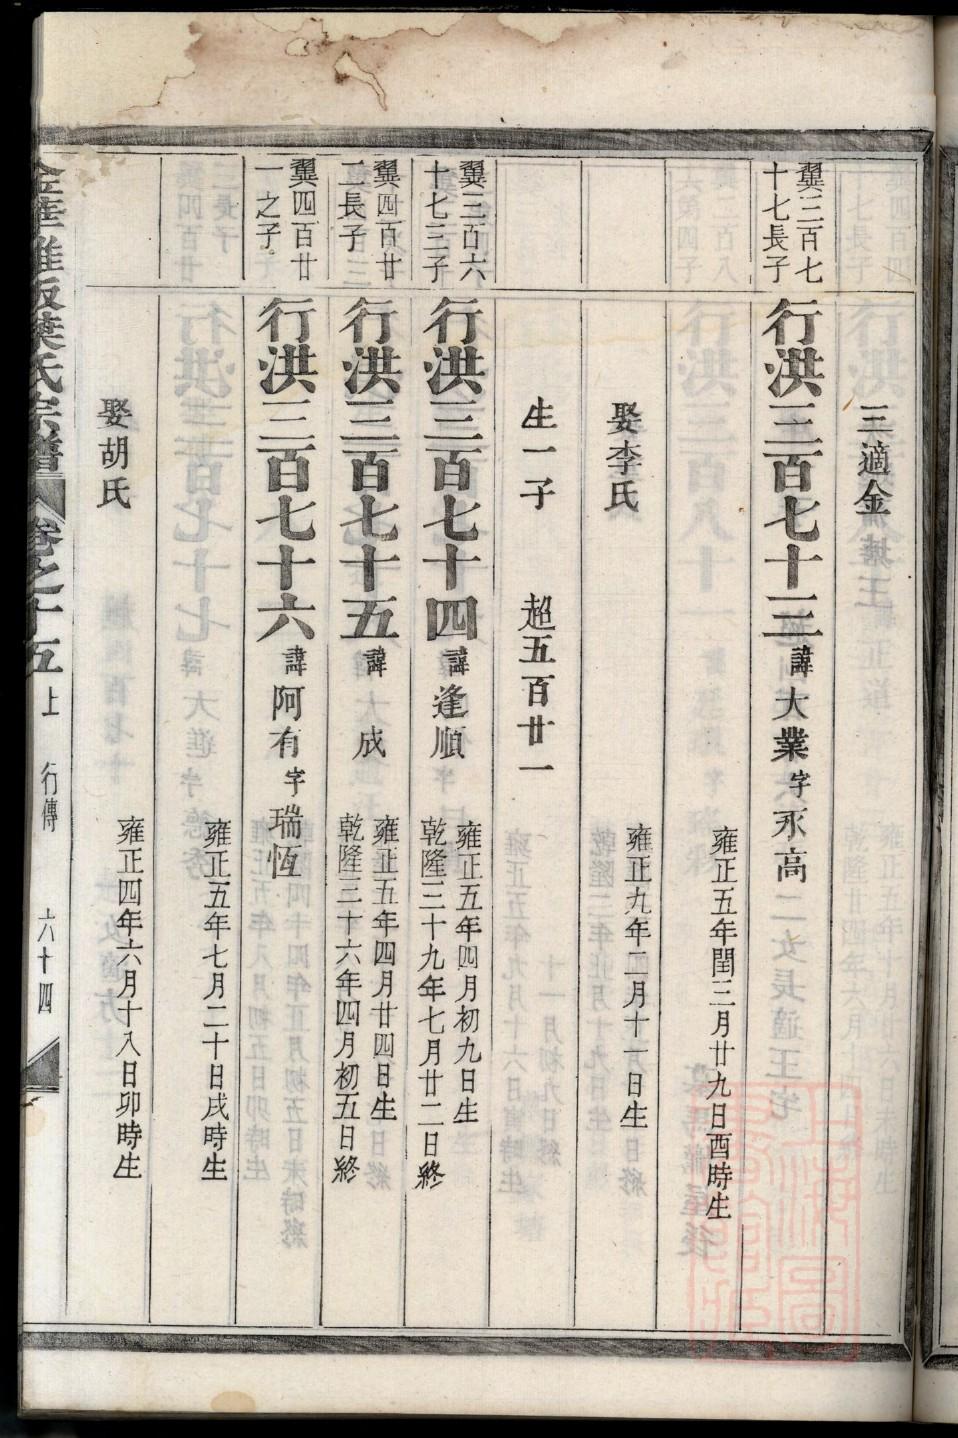 三適金
翼三百七
十七長子
行洪三百七十三 諱大業 字永高
雍正五年閏三月廿九日酉時生
娶李氏
雍正九年二月十一日生
生一子 超五百廿一
翼三百六
十七三子
行洪三百七十四 諱逢順
雍正五年四月初九日生
乾隆三十九年七月廿二日終
翼四百廿
二長子
行洪三百七十五 諱成
雍正五年四月廿四日生
乾隆三十六年四月初五日終
翼四百廿
一之子
行洪三百七十六 諱阿有 字瑞恆
雍正五年七月二十日戌時生
娶胡氏
雍正四年六月十八日卯時生
金華雅畈葉氏宗譜 卷之十五 上 行傳 六十四